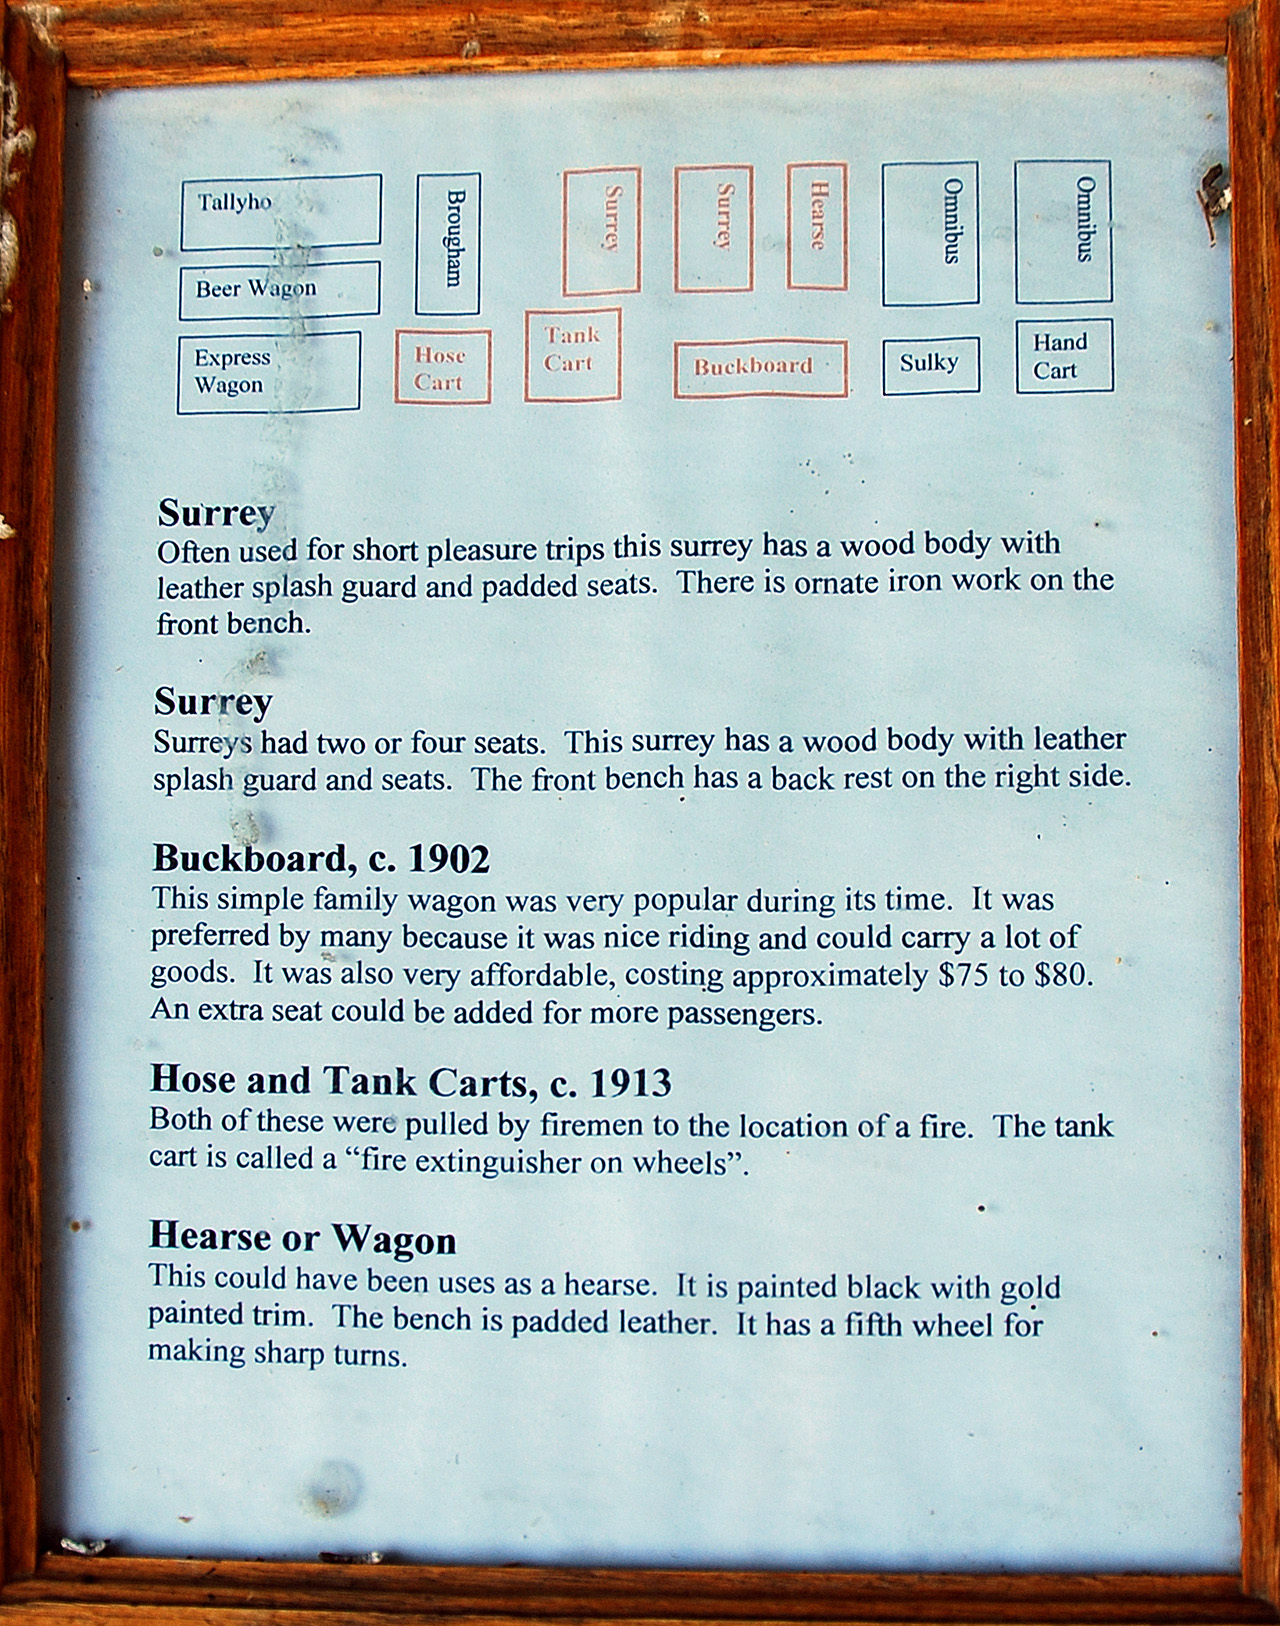 Tallyho
Beer Wagon
Express
Wagon
Brougham
Hose
Cart
Tank
Cart
Surrey
Surrey
Hearse
Buckboard
Omnibus
Omnibus
Sulky
Hand
Cart
Surrey
Often used for short pleasure trips this surrey has a wood body with
leather splash guard and padded seats. There is ornate iron work on the
front bench.
Surrey
Surreys had two or four seats. This surrey has a wood body with leather
splash guard and seats. The front bench has a back rest on the right side.
Buckboard, c. 1902
This simple family wagon was very popular during its time. It was
preferred by many because it was nice riding and could carry a lot of
goods. It was also very affordable, costing approximately $75 to $80.
An extra seat could be added for more passengers.
Hose and Tank Carts, c. 1913
Both of these were pulled by firemen to the location of a fire. The tank
cart is called a “fire extinguisher on wheels”.
Hearse or Wagon
This could have been uses as a hearse. It is painted black with gold
painted trim. The bench is padded leather. It has a fifth wheel for
making sharp turns.